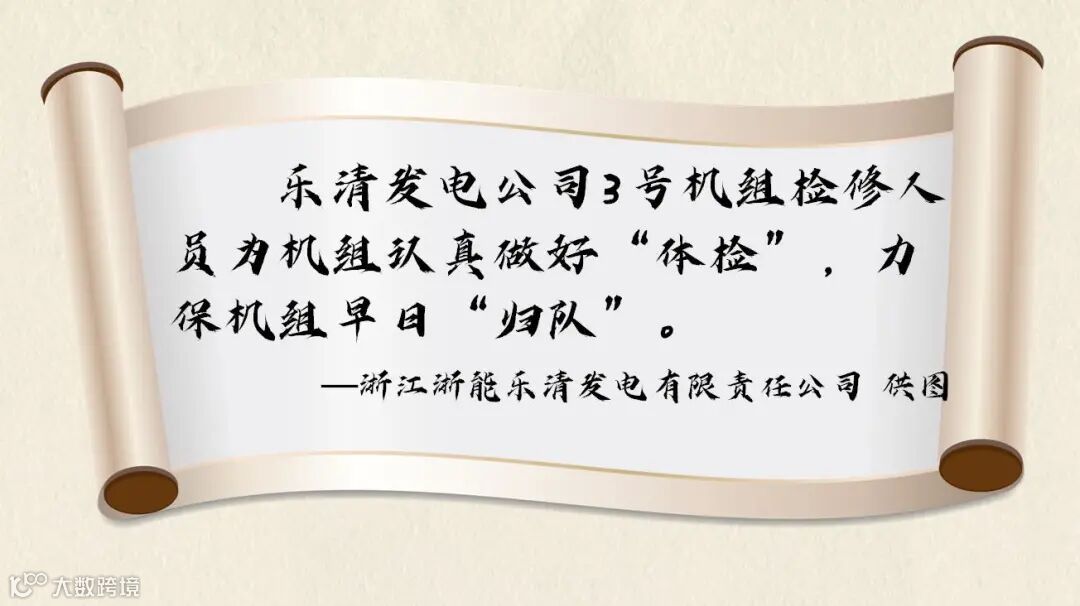 乐清发电公司3号机组检修人
员为机组认真做好“体检”，力
保机组早日“归队”。
—浙江浙能乐清发电有限责任公司 供图
大数跨境